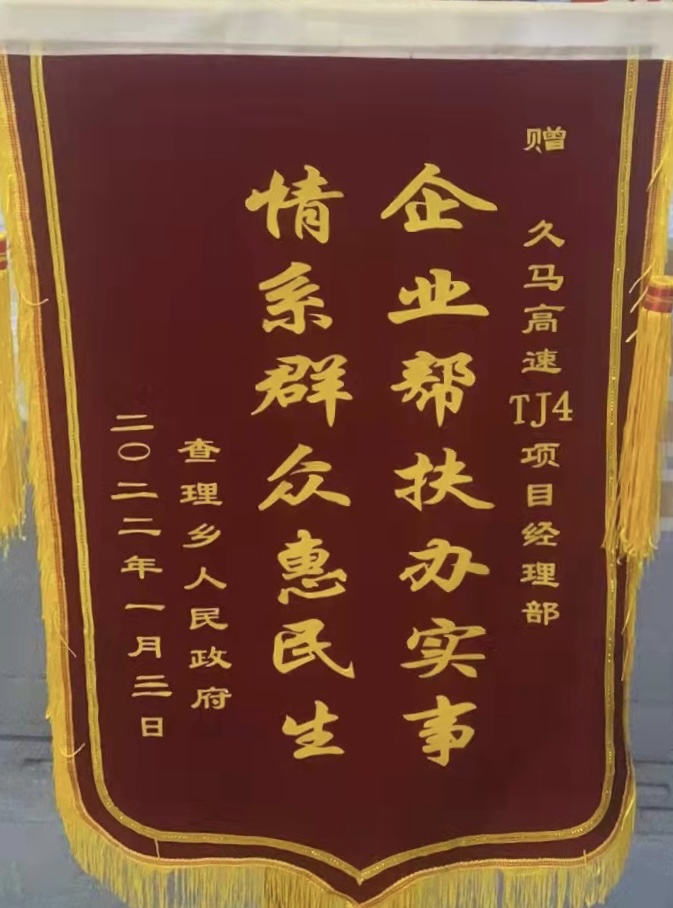 赠 久马高速TJ4项目经理部
企业帮扶办实事
情系群众惠民生
查理乡人民政府
二〇二二年一月三日